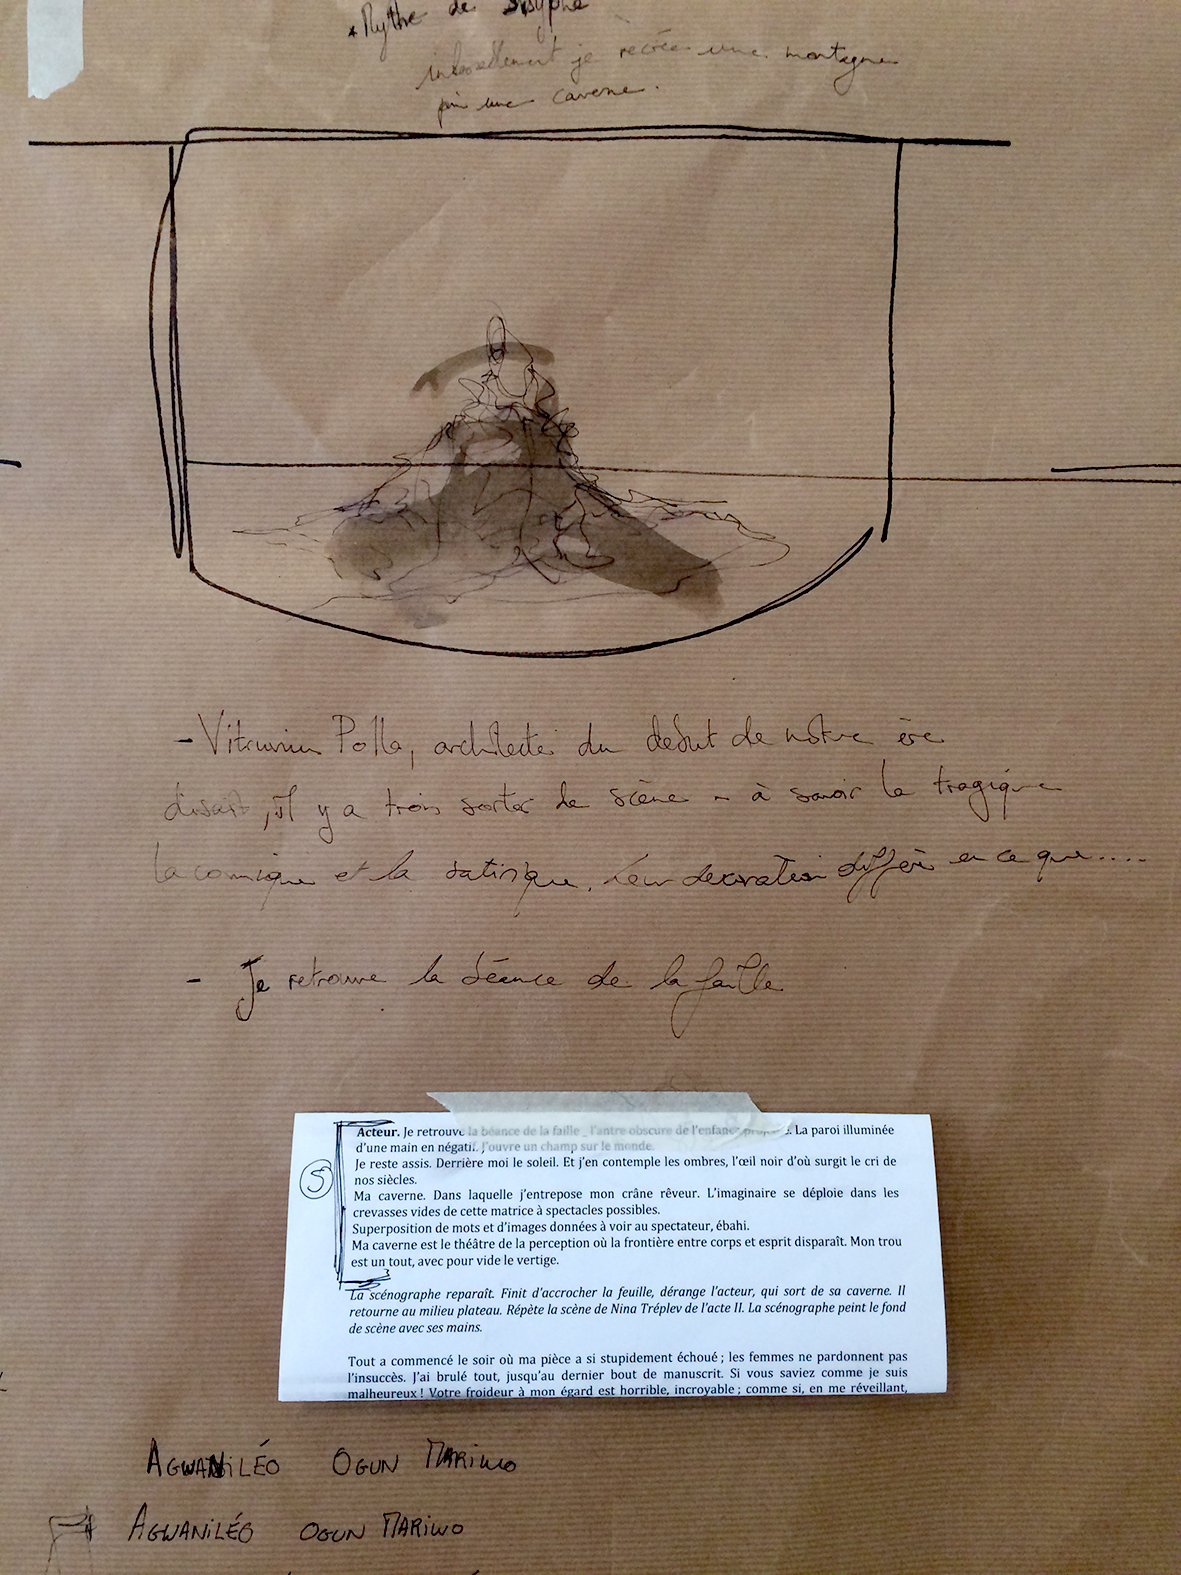 * Mythe de Sisyphe
je recrée une montagne
puis une caverne.
- Vitruviu Polla, architecte du debut de notre ère
disait, il y a trois sortes de scène - à savoir la tragique
la comique et la satirique. Leur decoration diffère en ce que....
- Je retrouve la béance de la faille
Acteur. Je retrouve la béance de la faille _ l'antre obscure de l'enfance La paroi illuminée
d'une main en négatif. J'ouvre un champ sur le monde.
Je reste assis. Derrière moi le soleil. Et j'en contemple les ombres, l'œil noir d'où surgit le cri de
nos siècles.
5
Ma caverne. Dans laquelle j'entrepose mon crâne rêveur. L'imaginaire se déploie dans les
crevasses vides de cette matrice à spectacles possibles.
Superposition de mots et d'images données à voir au spectateur, ébahi.
Ma caverne est le théâtre de la perception où la frontière entre corps et esprit disparaît. Mon trou
est un tout, avec pour vide le vertige.
La scénographe reparaît. Finit d'accrocher la feuille, dérange l'acteur, qui sort de sa caverne. Il
retourne au milieu plateau. Répète la scène de Nina Tréplev de l'acte II. La scénographe peint le fond
de scène avec ses mains.
Tout a commencé le soir où ma pièce a si stupidement échoué ; les femmes ne pardonnent pas
l'insuccès. J'ai brulé tout, jusqu'au dernier bout de manuscrit. Si vous saviez comme je suis
malheureux ! Votre froideur à mon égard est horrible, incroyable ; comme si, en me réveillant,
AGWANiLÉO OGUN MARiWO
AGWANiLÉO OGUN MARiWO